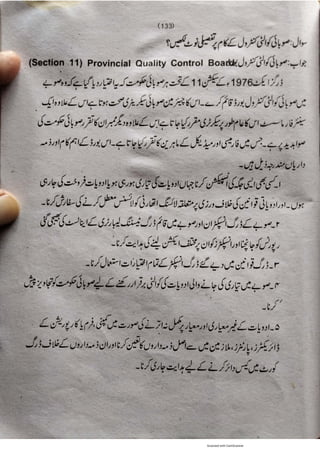 (133)
سوال: صوبائی کوالٹی کنٹرول کے کام پر تفصیلی نوٹ لکھیں؟
جواب: صوبائی کوالٹی کنٹرول بورڈ Provincial Quality Control Board (Section 11)
ڈرگز ایکٹ 1976ء کے سیکشن 11 کے تحت ہر صوبائی حکومت کو یہ اختیار دیا گیا ہے کہ وہ صوبے
میں صوبائی کوالٹی کنٹرول بورڈ قائم کرے۔ اس کا چیئرمین صوبائی سیکرٹری صحت ہوتا ہے اس کے علاوہ ایک
سینئر فارماسسٹ اس کا عام طور پر سیکرٹری مقرر کیا جاتا ہے اس کے علاوہ دیگر ممبران کا تقرر صوبائی حکومت کی
صوابدید پر ہے۔ جس میں فارمیسی اور میڈیکل کے ماہرین کا تقرر کیا جاتا ہے۔ اس بورڈ کے اہم کام اور ذمہ
داریاں مندرجہ ذیل ہیں۔
۱۔ کسی بھی ایسی جگہ کی انسپکشن کرنا جہاں ادویات کی تیاری ہو رہی ہو یا ادویات فروخت کی جا رہی
ہوں۔ اور ادویاتی قوانین کی خلاف ورزی پر متعلقہ لائسنگ اتھارٹی کو لائسنس معطل کرنے کی سفارش کرنا۔
۲۔ صوبے کے ڈرگ انسپکٹران اور صوبے میں قائم ڈرگ ٹیسٹنگ لیبارٹری کے اینالسٹ کی بھیجی گئی
رپورٹس کو جانچنا اور انسپکٹرز کو ان پر مختلف ایکشن لینے کی ہدایت کرنا۔
۳۔ ڈرگ قوانین میں دیے گئے ڈرگ انسپکٹر کے تمام اختیارات استعمال کرنا۔
۴۔ صوبے میں تیاری کی جانے والی ادویات کی کوالٹی برقرار رکھنے کے لیے صوبائی حکومت کو تجاویز پیش
کرنا۔
۵۔ ادویات کے غیر معیاری اور معیار پر مکمل نہ اترنے کی صورت میں کمپنی، فرم یا کارپوریشن کے
ڈائریکٹرز، پارٹنرز، ملازمین میں سے اصل ذمہ داروں کا تعین کرنا اور ان ذمہ داروں کے خلاف ڈرگ
کورٹ میں کیس دائر کرنے کے لیے ہدایت جاری کرنا۔
Scanned with CamScanner